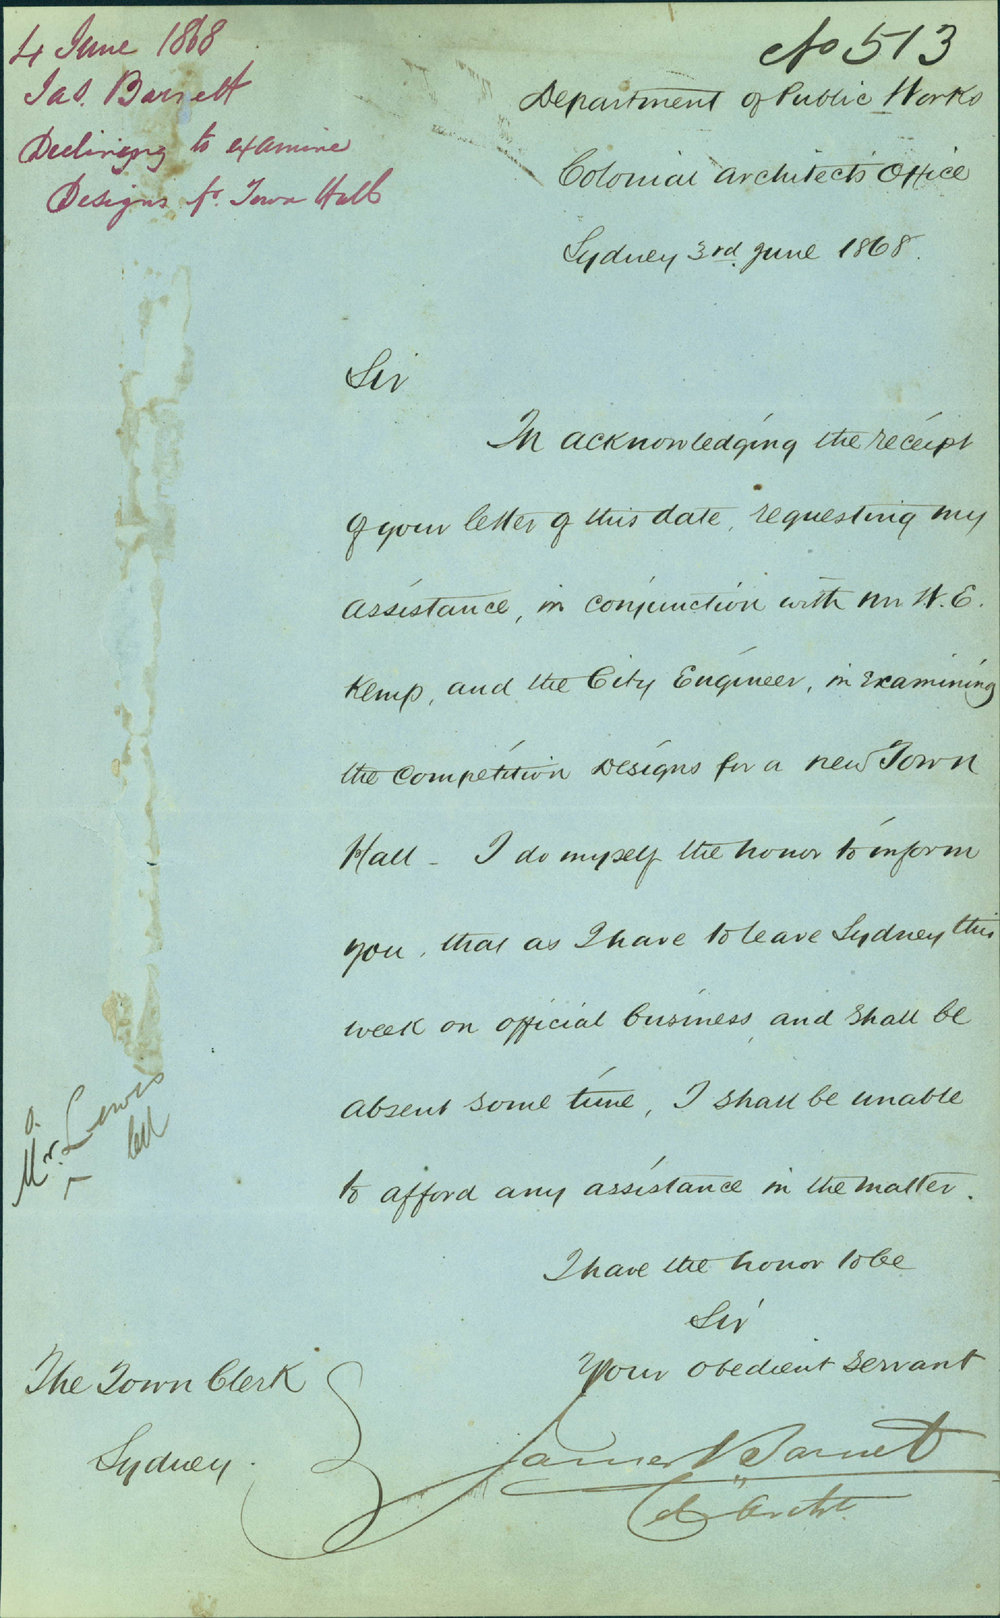 4 June 1868
Jas. Barnett
Declining to examine
Designs fr. Town Hall
No 513
Department of Public Works
Colonial Architects Office
Sydney 3rd June 1868.
Sir
In acknowledging the receipt
of your letter of this date, requesting my
assistance, in conjunction with Mr W. E.
Kemp, and the City Engineer, in examining
the Competition Designs for a new Town
Hall - I do myself the honor to inform
you, that as I have to leave Sydney this
week on official business, and shall be
absent some time, I shall be unable
to afford any assistance in the matter.
I have the honor to be
Sir
Your obedient servant
James Barnet
Col. Archt.
The Town Clerk
Sydney.
Mr. Lewis